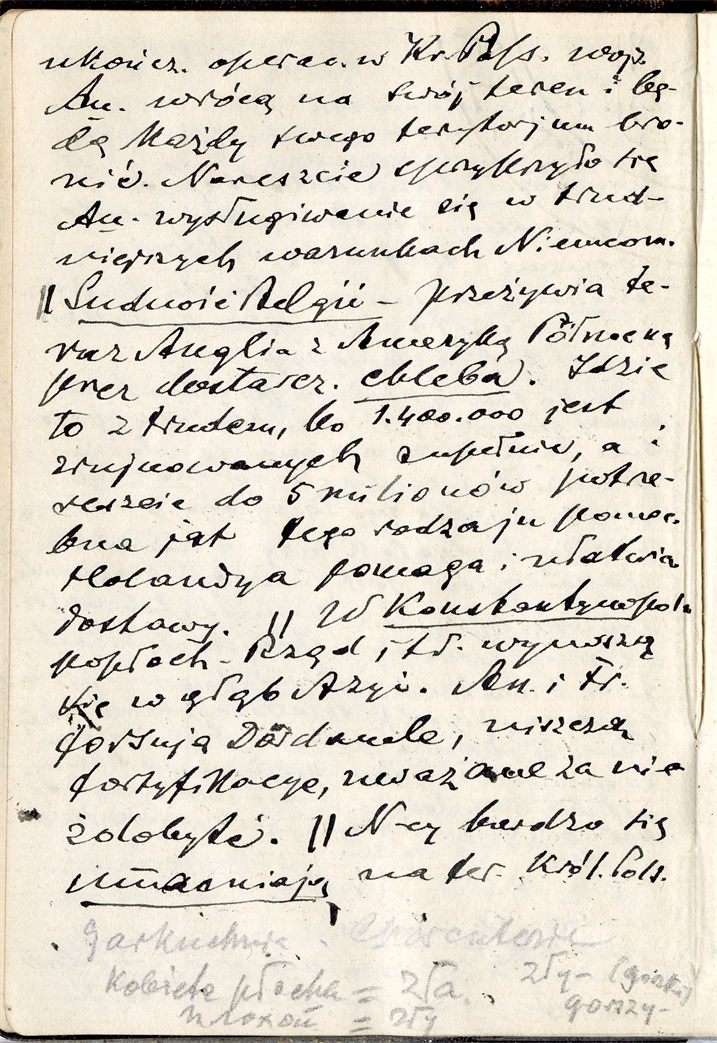 ukończ. operac. w Kr. Pols. wojs.
Au. wrócą na swój teren i bę-
dą każdy swego terytorjum bro-
nić. Nareszcie sprzykrzyło się
Au. wysługiwanie się w trud-
niejszych warunkach Niemcom.
|| Ludność Belgii – przeżywia te-
raz Anglia z Ameryką Północną
przez dostarcz. chleba. Idzie
to z trudem, bo 1.400.000 jest
zrujnowanych zupełnie, a
reszcie do 5 milionów potrze-
bna jest tego rodzaju pomoc.
Holandya pomaga i ułatwia
dostawy. || W Konstantynopolu
popłoch – Rząd i t.d. wynoszą
się w głąb Azyi. An. i Fr.
forsują Dardanele, niszcząc
fortyfikacye, uważane za nie
zdobyte. || N-cy bardzo się
umacniają na ter. Król. Pols.
garkuchnia –
Kobieta płocha = zła. zły – (gorzki)
= zły gorszy –